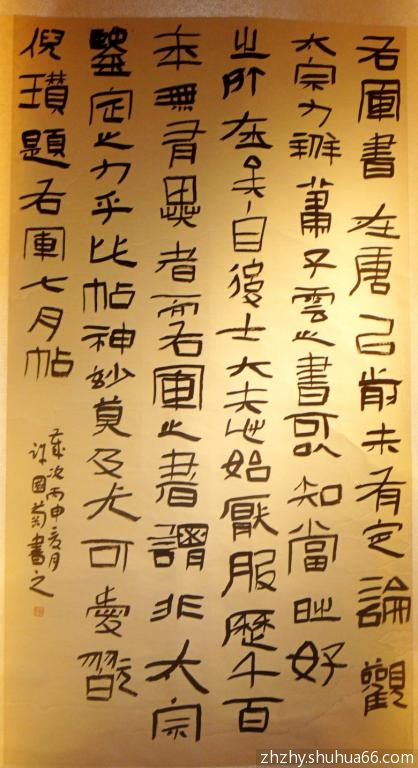 右軍書在唐已前未有定論觀
太宗力辨蕭子雲之書可以知當時好
之所在矣自後士大夫心始厭服歷千百
年無有異者而右軍之書謂非太宗
鑒定之力乎此帖神妙莫及尤可愛翫
倪瓚題右軍七月帖
歲次丙申月
國書之
zhzhy.shuhua66.com